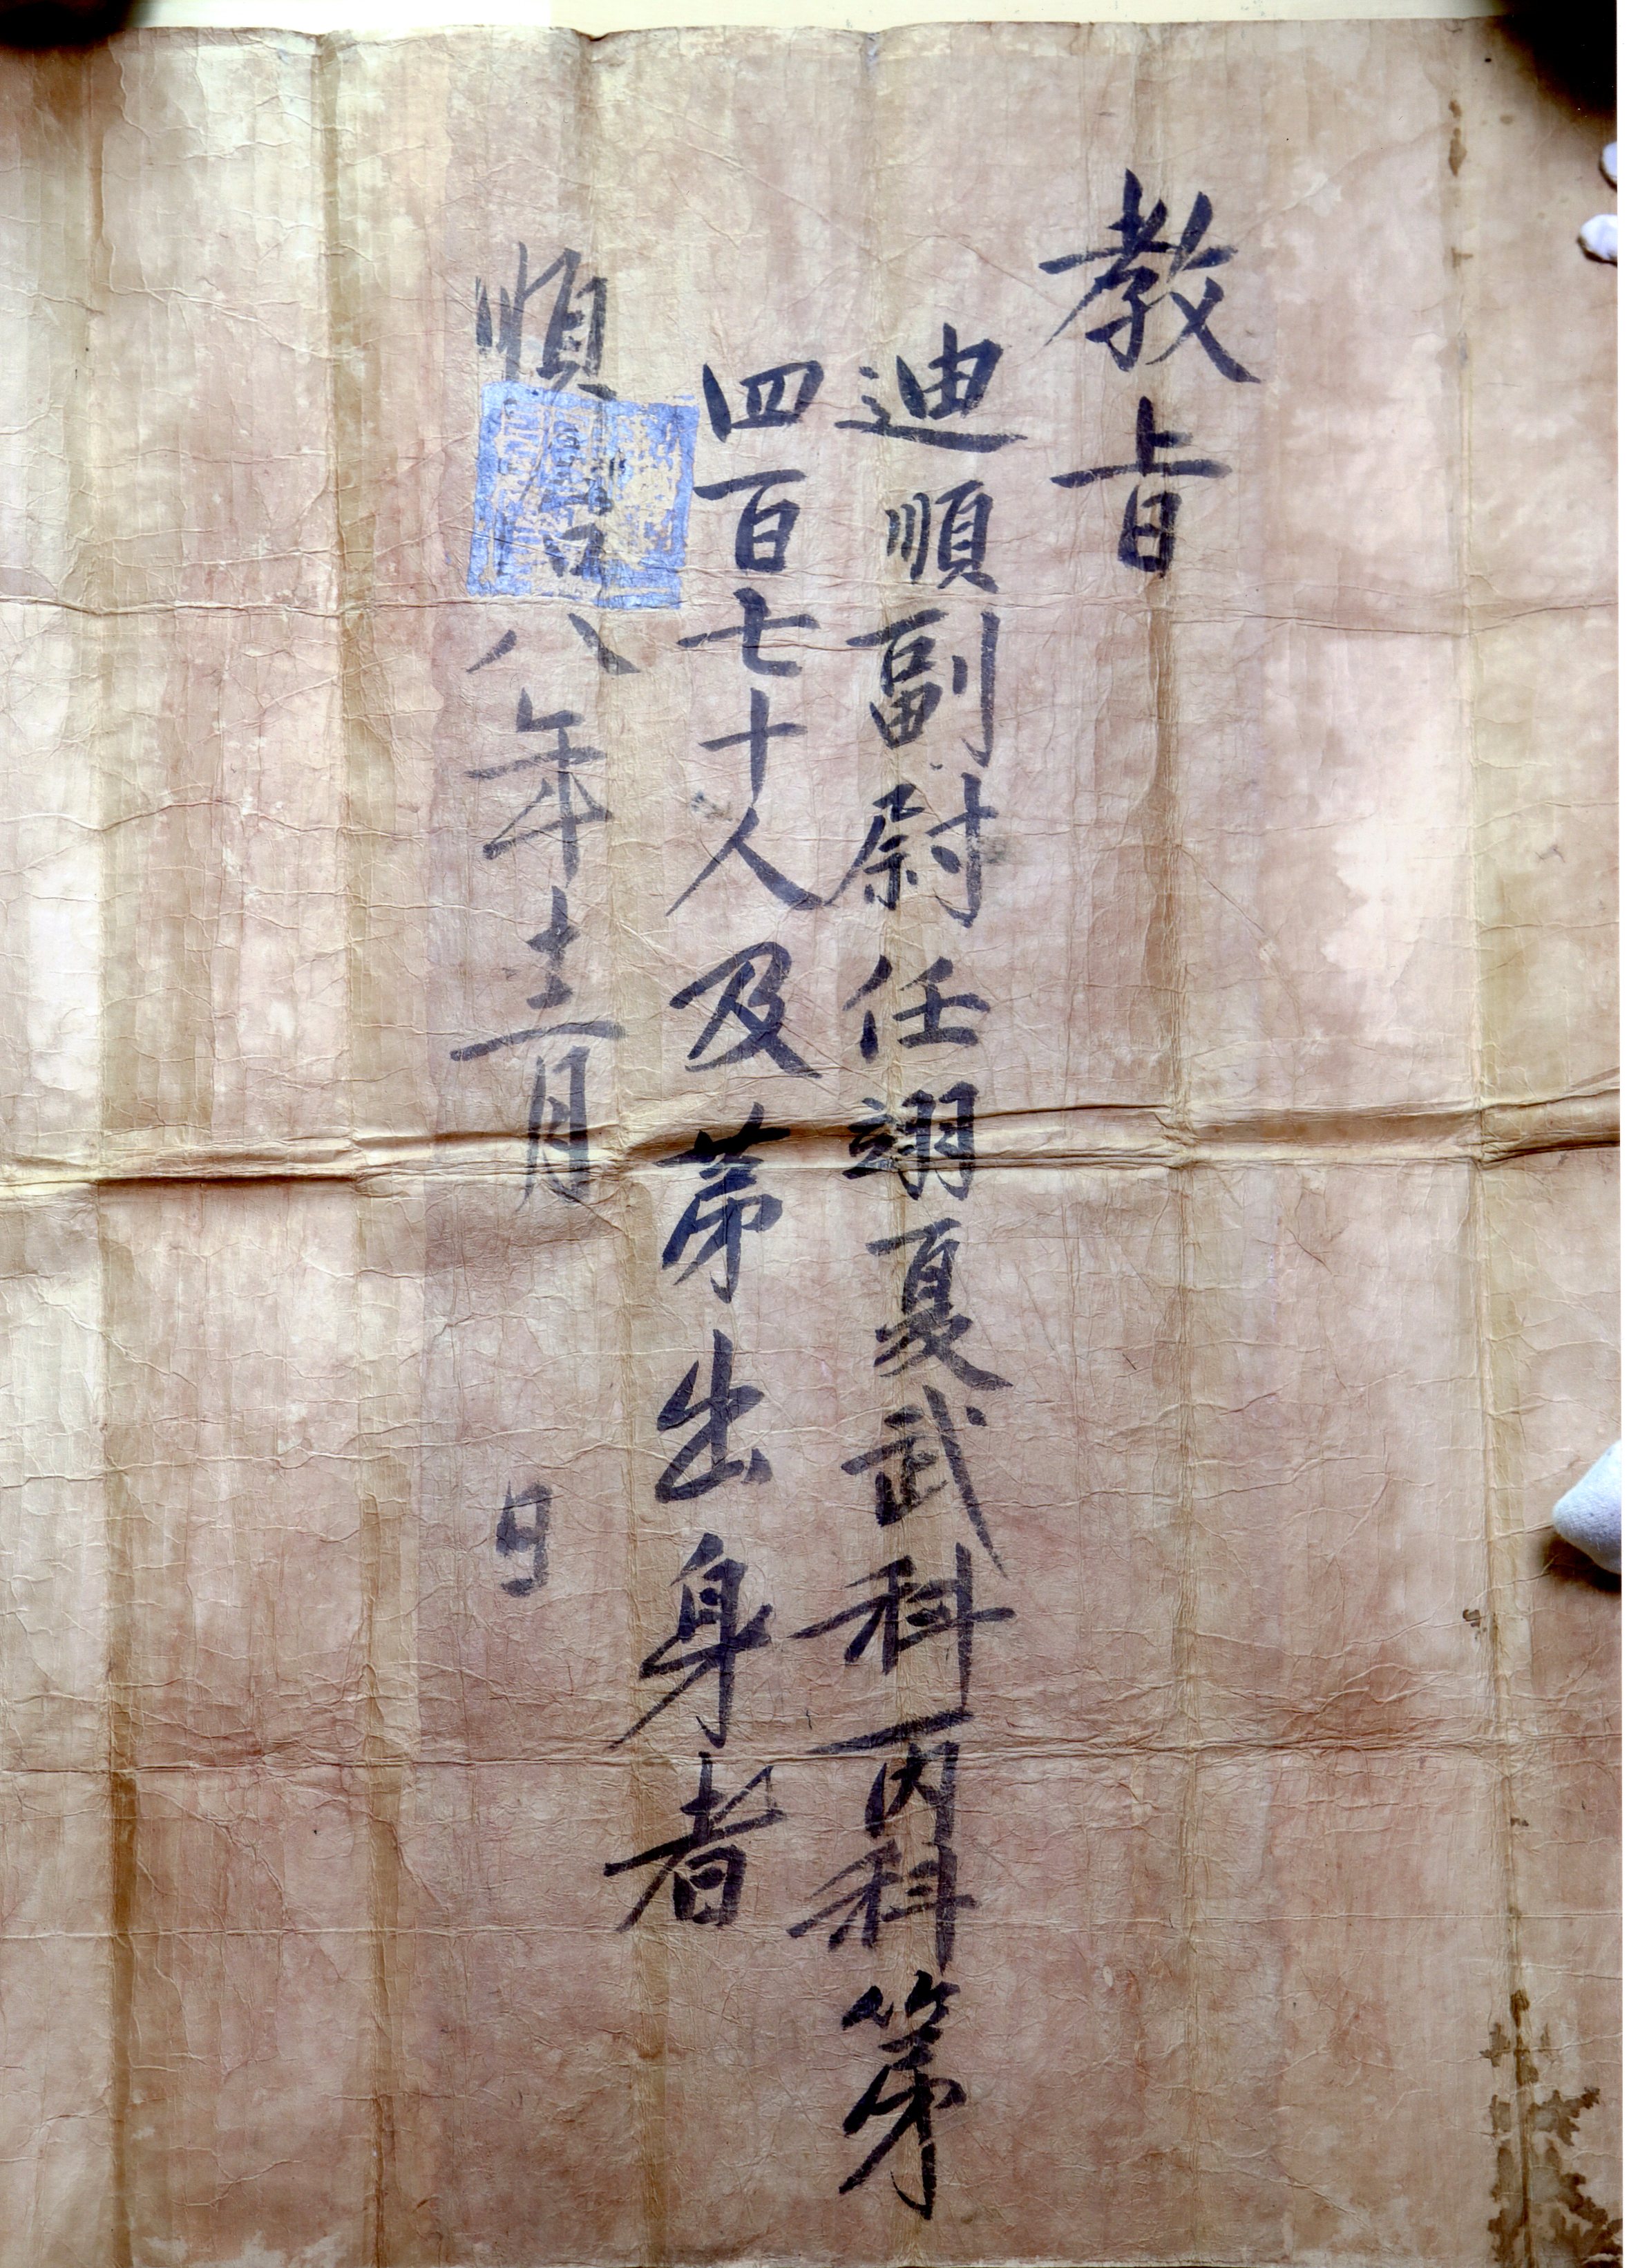 教旨
迪順副尉任翊夏武科丙科第
四百七十人及第出身者
順治八年十二月 日